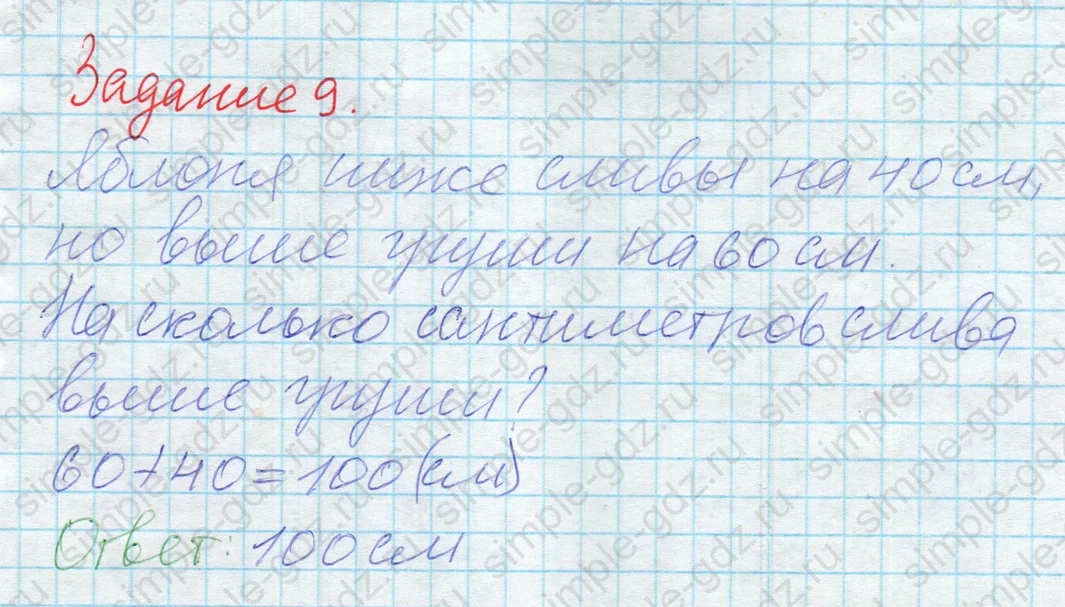 Задание 9.
Яблоня ниже сливы на 40 см,
но выше груши на 60 см.
На сколько сантиметров слива
выше груши?
60+40=100(см)
Ответ: 100 см
simple-gdz.ru